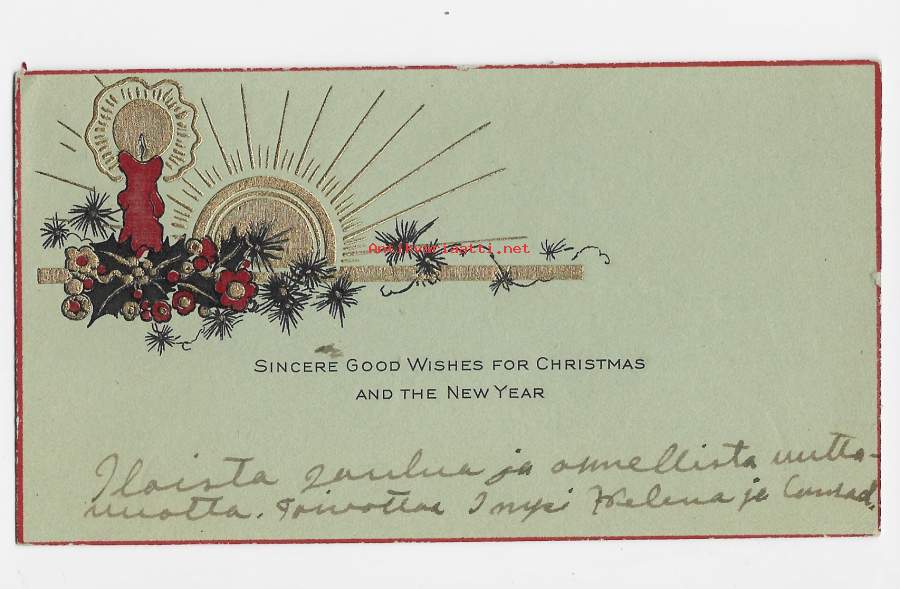 Antikvariaatti.net
SINCERE GOOD WISHES FOR CHRISTMAS
AND THE NEW YEAR
Iloista joulua ja onnellista uutta-
vuotta. toivottaa Helena ja